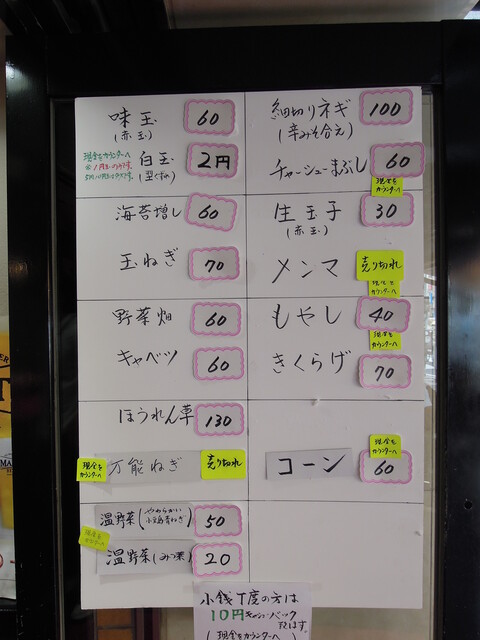 味玉 60
(赤玉)
現金をカウンターへ
白玉 2円
海苔増し 60
玉ねぎ 70
野菜畑 60
キャベツ 60
ほうれん草 130
現金をカウンターへ
万能ねぎ 売り切れ
温野菜(やわらかい小松菜青ねぎ) 50
温野菜(みつ葉) 20
細切りネギ 100
(辛みそ合え)
チャーシューまぶし 60
現金をカウンターへ
生玉子 30
(赤玉)
メンマ 売り切れ
現金をカウンターへ
もやし 40
現金をカウンターへ
きくらげ 70
現金をカウンターへ
コーン 60
小銭丁度の方は
10円キャッシュバック
(現金をカウンターへ